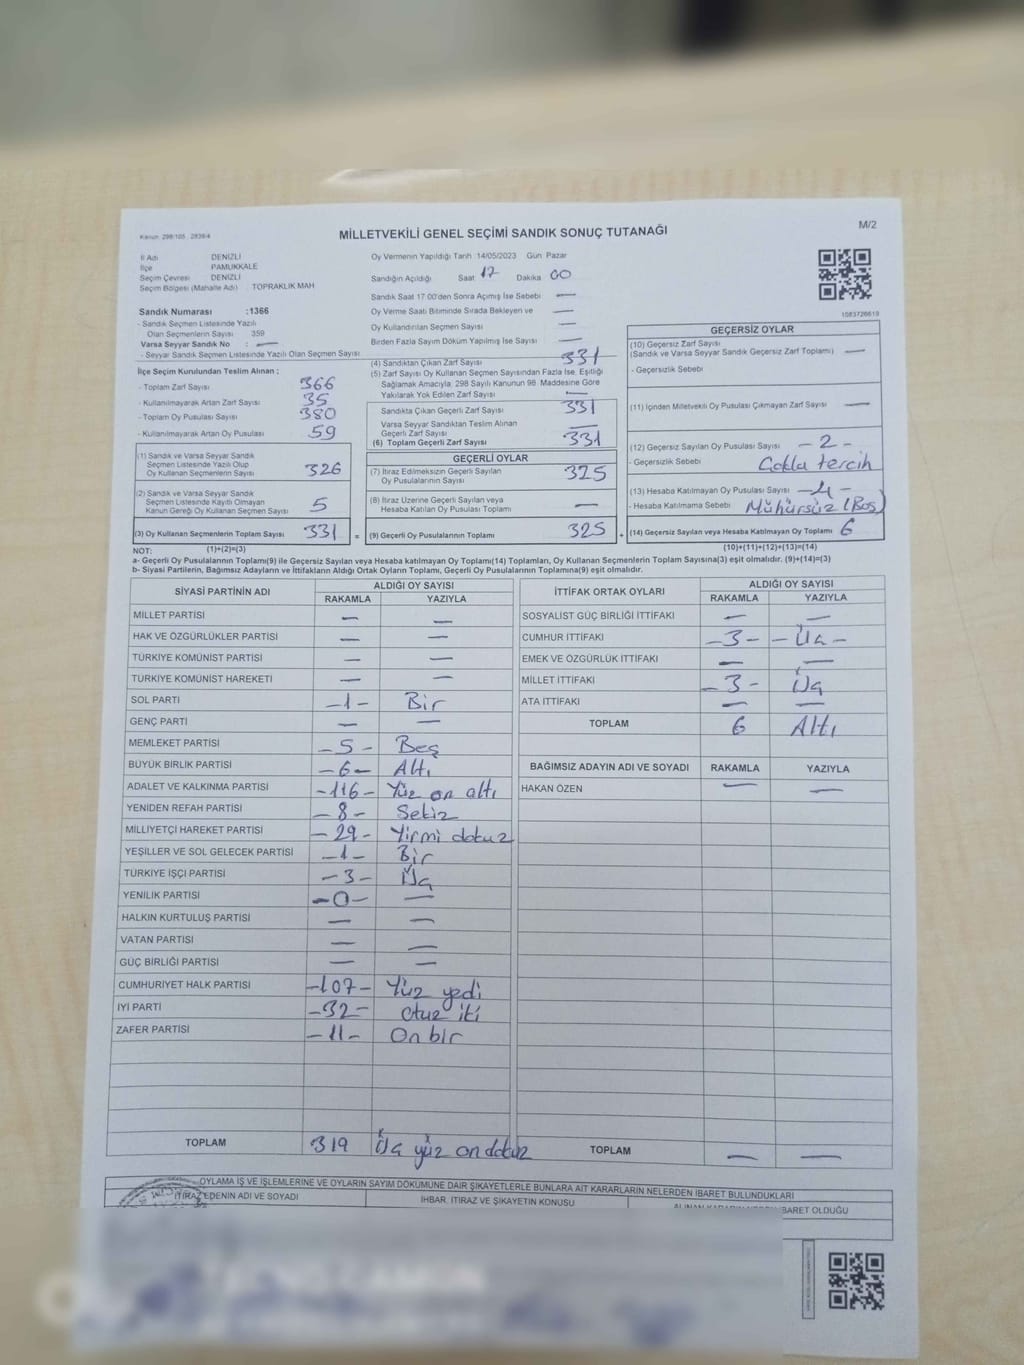 Kanun 298/105 2839/4
M/2
MİLLETVEKİLİ GENEL SEÇİMİ SANDIK SONUÇ TUTANAĞI
İl Adı DENİZLİ
İlçe PAMUKKALE
Seçim Çevresi DENİZLİ
Seçim Bölgesi (Mahalle Adı) TOPRAKLIK MAH
Sandık Numarası :1366
- Sandık Seçmen Listesinde Yazılı
Olan Seçmenlerin Sayısı 359
Varsa Seyyar Sandık No : —
- Seyyar Sandık Seçmen Listesinde Yazılı Olan Seçmen Sayısı
Oy Vermenin Yapıldığı Tarih 14/05/2023 Gün Pazar
Sandığın Açıldığı Saat 17 Dakika 00
Sandık Saat 17.00'den Sonra Açımış İse Sebebi —
Oy Verme Saati Bitiminde Sırada Bekleyen ve —
Oy Kullandırılan Seçmen Sayısı —
Birden Fazla Sayım Döküm Yapılmış İse Sayısı —
1083726619
İlçe Seçim Kurulundan Teslim Alınan :
- Toplam Zarf Sayısı 366
- Kullanılmayarak Artan Zarf Sayısı 35
- Toplam Oy Pusulası Sayısı 380
- Kullanılmayarak Artan Oy Pusulası 59
(1) Sandık ve Varsa Seyyar Sandık
Seçmen Listesinde Yazılı Olup
Oy Kullanan Seçmenlerin Sayısı 326
(2) Sandık ve Varsa Seyyar Sandık
Seçmen Listesinde Kayıtlı Olmayan
Kanun Gereği Oy Kullanan Seçmen Sayısı 5
(3) Oy Kullanan Seçmenlerin Toplam Sayısı 331 =
(4) Sandıktan Çıkan Zarf Sayısı 331
(5) Zarf Sayısı Oy Kullanan Seçmen Sayısından Fazla İse, Eşitliği
Sağlamak Amacıyla, 298 Sayılı Kanunun 98. Maddesine Göre
Yakılarak Yok Edilen Zarf Sayısı —
Sandıkta Çıkan Geçerli Zarf Sayısı 331
Varsa Seyyar Sandıktan Teslim Alınan
Geçerli Zarf Sayısı —
(6) Toplam Geçerli Zarf Sayısı 331
GEÇERLİ OYLAR
(7) İtiraz Edilmeksizin Geçerli Sayılan
Oy Pusulalarının Sayısı 325
(8) İtiraz Üzerine Geçerli Sayılan veya
Hesaba Katılan Oy Pusulası Toplamı —
(9) Geçerli Oy Pusulalarının Toplamı 325 +
GEÇERSİZ OYLAR
(10) Geçersiz Zarf Sayısı
(Sandık ve Varsa Seyyar Sandık Geçersiz Zarf Toplamı) —
- Geçersizlik Sebebi
(11) İçinden Milletvekili Oy Pusulası Çıkmayan Zarf Sayısı —
(12) Geçersiz Sayılan Oy Pusulası Sayısı - 2 -
- Geçersizlik Sebebi Çokla tercih
(13) Hesaba Katılmayan Oy Pusulası Sayısı - 4 -
- Hesaba Katılmama Sebebi Mühürsüz (Boş)
(14) Geçersiz Sayılan veya Hesaba Katılmayan Oy Toplamı 6
NOT: (1)+(2)=(3) (10)+(11)+(12)+(13)=(14)
a- Geçerli Oy Pusulalarının Toplamı(9) ile Geçersiz Sayılan veya Hesaba katılmayan Oy Toplam(14) Toplamları, Oy Kullanan Seçmenlerin Toplam Sayısına(3) eşit olmalıdır. (9)+(14)=(3)
b- Siyasi Partilerin, Bağımsız Adayların ve İttifakların Aldığı Ortak Oyların Toplamı, Geçerli Oy Pusulalarının Toplamına(9) eşit olmalıdır.
SİYASİ PARTİNİN ADI ALDIĞI OY SAYISI
RAKAMLA YAZIYLA
MİLLET PARTİSİ — —
HAK VE ÖZGÜRLÜKLER PARTİSİ — —
TÜRKİYE KOMÜNİST PARTİSİ — —
TÜRKİYE KOMÜNİST HAREKETİ — —
SOL PARTİ -1- Bir
GENÇ PARTİ — —
MEMLEKET PARTİSİ -5- Beş
BÜYÜK BİRLİK PARTİSİ -6- Altı
ADALET VE KALKINMA PARTİSİ -116- Yüz on altı
YENİDEN REFAH PARTİSİ -8- Sekiz
MİLLİYETÇİ HAREKET PARTİSİ -29- Yirmi dokuz
YEŞİLLER VE SOL GELECEK PARTİSİ -1- Bir
TÜRKİYE İŞÇİ PARTİSİ -3- Üç
YENİLİK PARTİSİ -0- —
HALKIN KURTULUŞ PARTİSİ — —
VATAN PARTİSİ — —
GÜÇ BİRLİĞİ PARTİSİ — —
CUMHURİYET HALK PARTİSİ -107- Yüz yedi
İYİ PARTİ -32- Otuz iki
ZAFER PARTİSİ -11- On bir
TOPLAM 319 Üç yüz on dokuz
İTTİFAK ORTAK OYLARI ALDIĞI OY SAYISI
RAKAMLA YAZIYLA
SOSYALİST GÜÇ BİRLİĞİ İTTİFAKI — —
CUMHUR İTTİFAKI -3- -Üç-
EMEK VE ÖZGÜRLÜK İTTİFAKI — —
MİLLET İTTİFAKI -3- Üç
ATA İTTİFAKI — —
TOPLAM 6 Altı
BAĞIMSIZ ADAYIN ADI VE SOYADI RAKAMLA YAZIYLA
HAKAN ÖZEN — —
TOPLAM — —
OYLAMA İŞ VE İŞLEMLERİNE VE OYLARIN SAYIM DÖKÜMÜNE DAİR ŞİKAYETLERLE BUNLARA AİT KARARLARIN NELERDEN İBARET BULUNDUKLARI
İTİRAZ EDENİN ADI VE SOYADI İHBAR, İTİRAZ VE ŞİKAYETİN KONUSU İBARET OLDUĞU